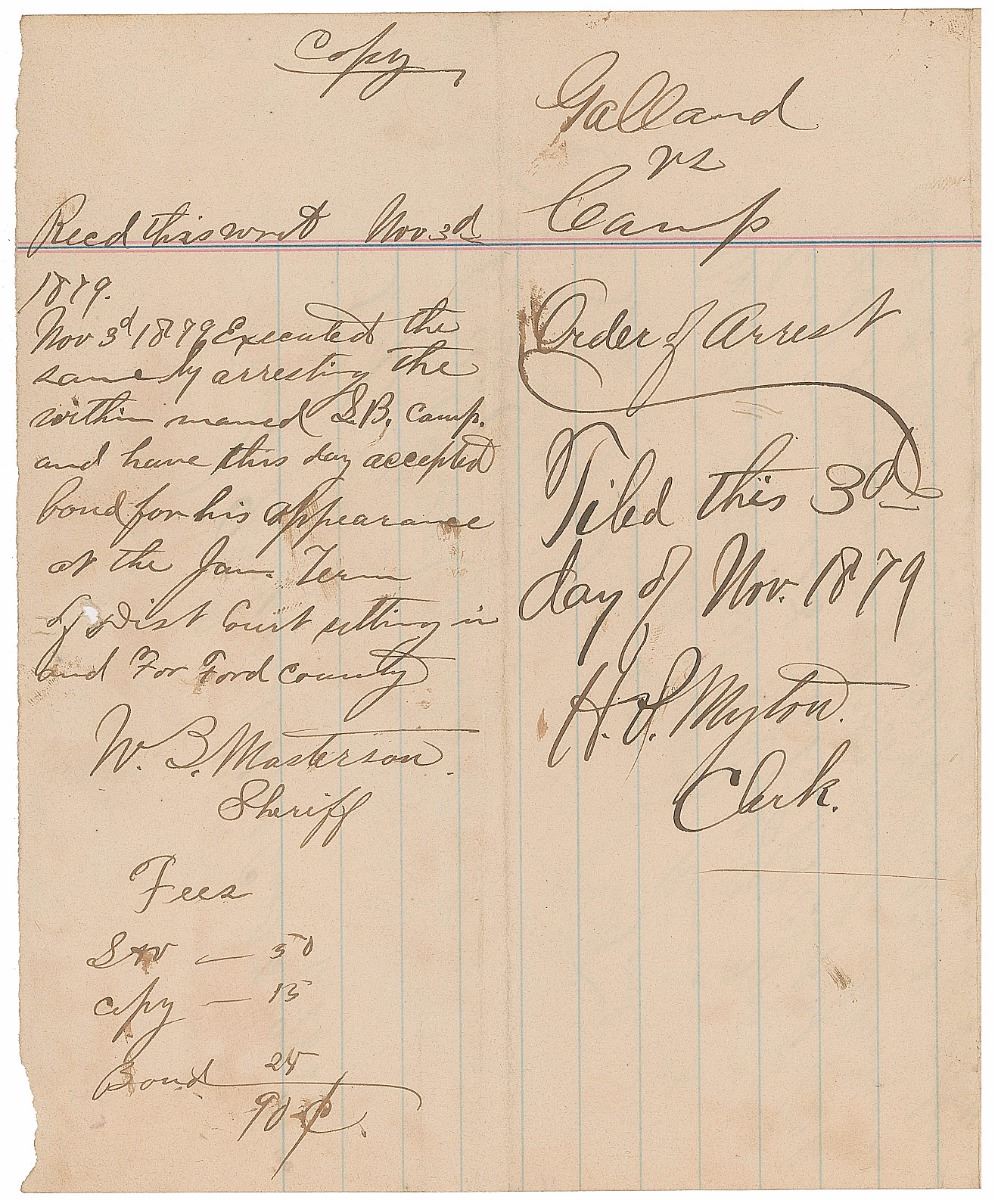 Copy
Recd this writ Nov 3d
1879.
Nov 3d 1879 Executed the
same by arresting the
within named S.B. Camp.
and have this day accepted
bond for his appearance
at the Jan. Term
of Dist Court sitting in
and For Ford County
W. B. Masterson.
Sheriff
Fees
— 50
Copy — 15
Bond 25
90 ¢.
Galland
vs
Camp
Order of Arrest
Filed this 3d
day of Nov. 1879
H. P. Myton.
Clerk.